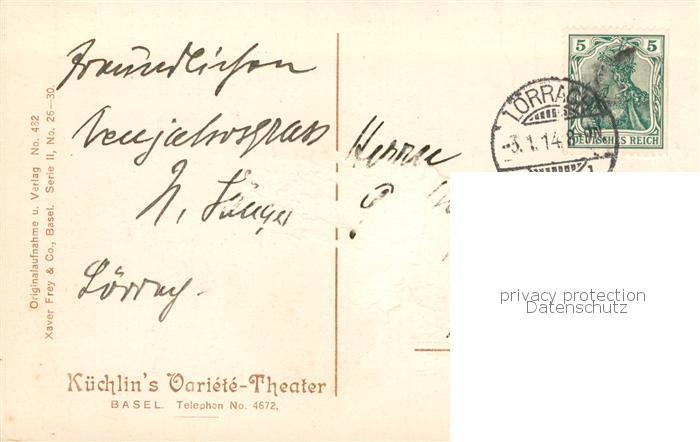 Freundlichen
Neujahrsgruss
Lörrach.
Herrn
Originalaufnahme u. Verlag No. 482
Xaver Frey & Co., Basel. Serie II, No. 26—30.
Küchlin's Variété-Theater
BASEL. Telephon No. 4672.
5 5
DEUTSCHES REICH
LÖRRACH
1.14.8-9N
privacy protection
Datenschutz